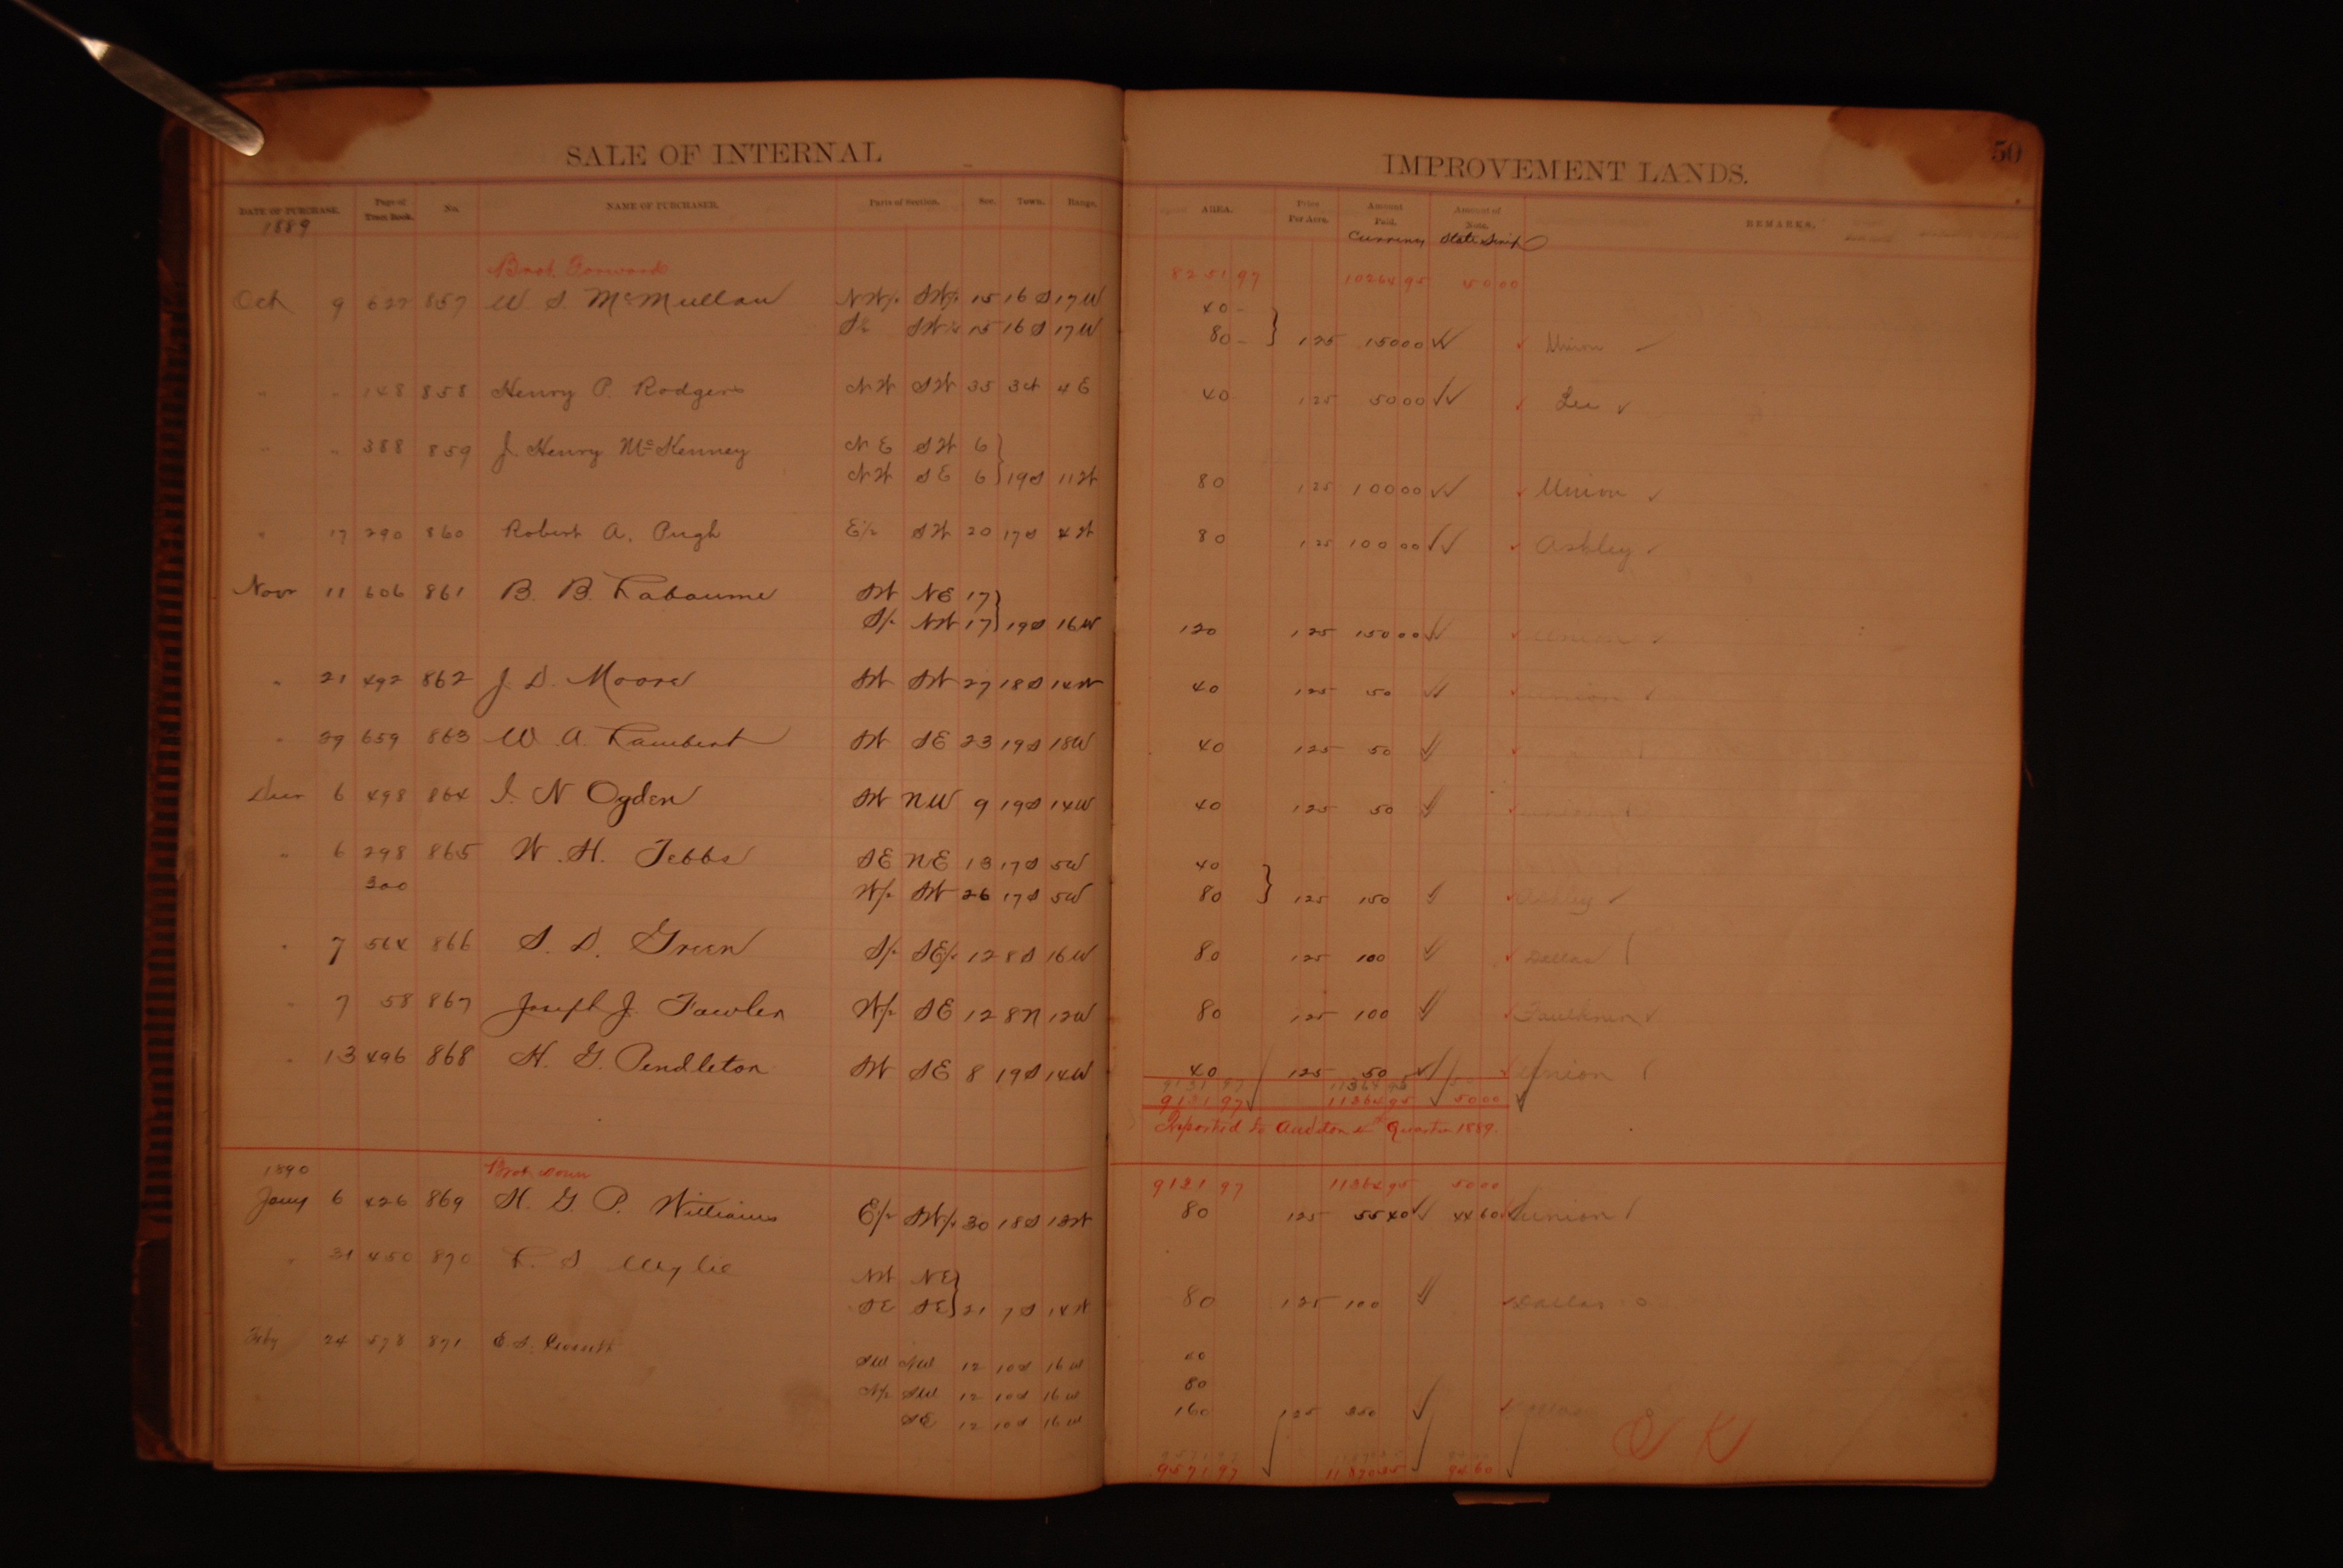 SALE OF INTERNAL IMPROVEMENT LANDS. 50
DATE OF PURCHASE. Page of Tract Book. No. NAME OF PURCHASER. Parts of Section. Sec. Town. Range. AREA. Price Per Acre. Amount Paid. Amount of Note. REMARKS.
1889 Currency State Scrip
Brot. Forward 8251 97 10264 95 50 00
Oct 9 627 857 W. S. McMullan NW/4 SW/4 15 16 S 17 W 40 -
S/2 SW/4 15 16 S 17 W 80 - } 125 150 00 Union
" " 148 858 Henry P. Rodgers NW SW 35 3N 4 E 40 125 50 00 Lee
" " 388 859 J. Henry McKenney N E SW 6 }
NW SE 6 } 19S 11W 80 125 100 00 Union
" 17 290 860 Robert A. Pugh E/2 SW 20 17S 4W 80 125 100 00 Ashley
Novr 11 606 861 B. B. Labaume SW NE 17 }
S/2 NW 17 } 19S 16W 120 125 150 00 Union
" 21 492 862 J. D. Moore SW SW 27 18S 14W 40 125 50 Union
" 29 659 863 W. A. Lambert SW SE 23 19S 18W 40 125 50
Decr 6 498 864 I. N Ogden SW NW 9 19S 14W 40 125 50
" 6 298 865 W. H. Tebbs SE NE 13 17S 5W 40
300 W/2 SW 26 17S 5W 80 } 125 150 Ashley
" 7 564 866 S. D. Green S/2 SE/4 12 8S 16W 80 125 100 Dallas
" 7 58 867 Joseph J. Fowler W/2 SE 12 8N 12W 80 125 100 Faulkner
" 13 496 868 H. G. Pendleton SW SE 8 19S 14W 40 125 50 Union
9131 97 11364 95 50
9131 97 11364 95 50 00
Reported to Auditor 4th Quarter 1889.
1890 Brot. down 9121 97 11364 95 50 00
Jany 6 426 869 H. G. P. Williams E/2 SW/4 30 18S 12W 80 125 55 40 44 60 Union
" 31 450 870 L. S Wylie NW NE }
SE SE } 21 7S 14W 80 125 100 Dallas
Feby 24 578 871 E. S. Crossett
SW NW 12 10S 16W 40
N/2 SW 12 10S 16W 80
SE 12 10S 16W 160 125 350
O K
9571 97 11870 35 94 60